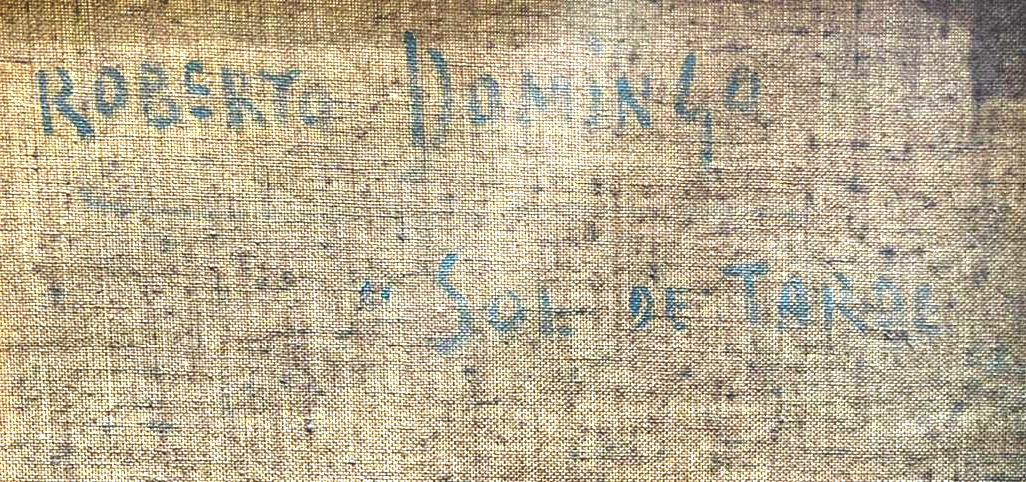 ROBERTO DOMINGO
"SOL DE TARDE